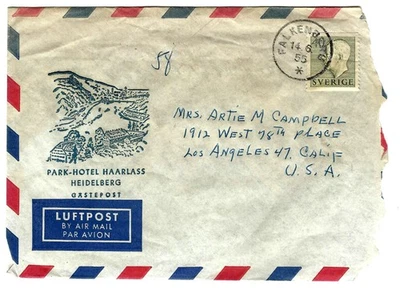 58
FALKENBERG
14.6.
55
SVERIGE
MRS. ARTIE M CAMPBELL
1912 WEST 78th PLACE
LOS ANGELES 47, CALIF
U.S.A.
PARK-HOTEL HAARLASS
HEIDELBERG
GÄSTEPOST
LUFTPOST
BY AIR MAIL
PAR AVION